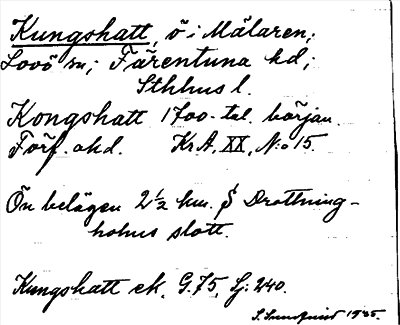 Kungshatt, ö i Mälaren;
Lovö sn; Färentuna hd;
Sthlms l.
Kongshatt 1700-tal. början.
Förf. okd. KrA, XX, N:o 15.
Ön belägen 2½ km. S Drottning-
holms slott.
Kungshatt ek. G.75, Sj: 240.
S. Sundquist 1935.